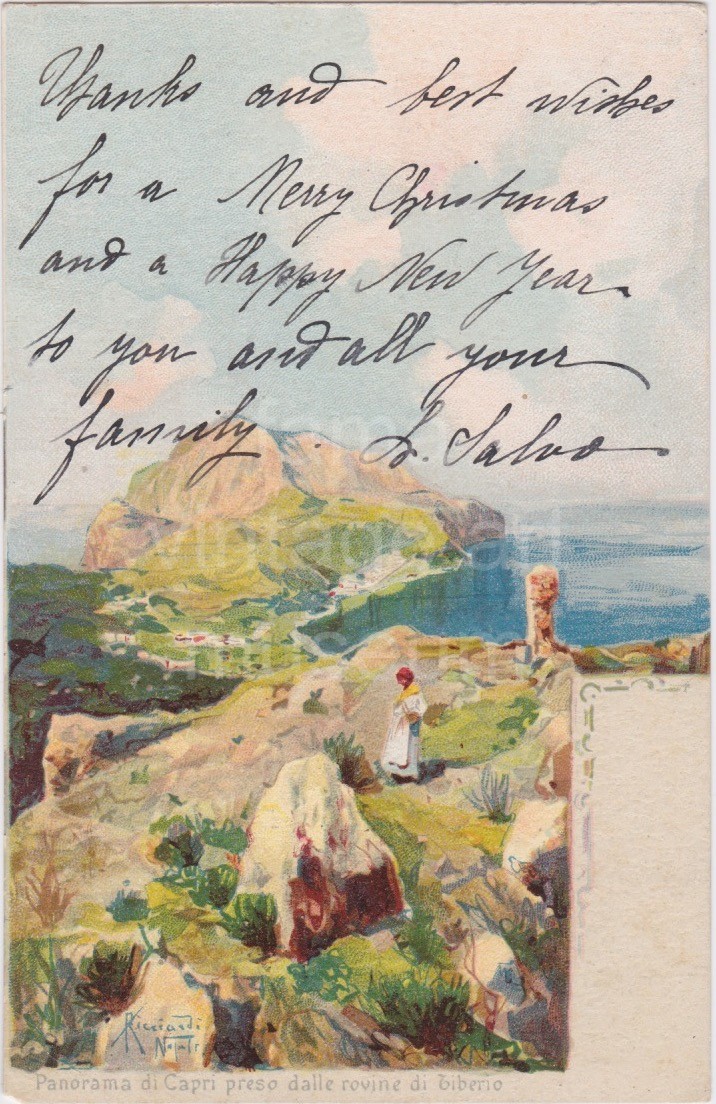 Thanks and best wishes
for a Merry Christmas
and a Happy New Year
to you and all your
family. L. Salvo
vintage art
museum
Ricciardi
Napoli
Panorama di Capri preso dalle rovine di Tiberio